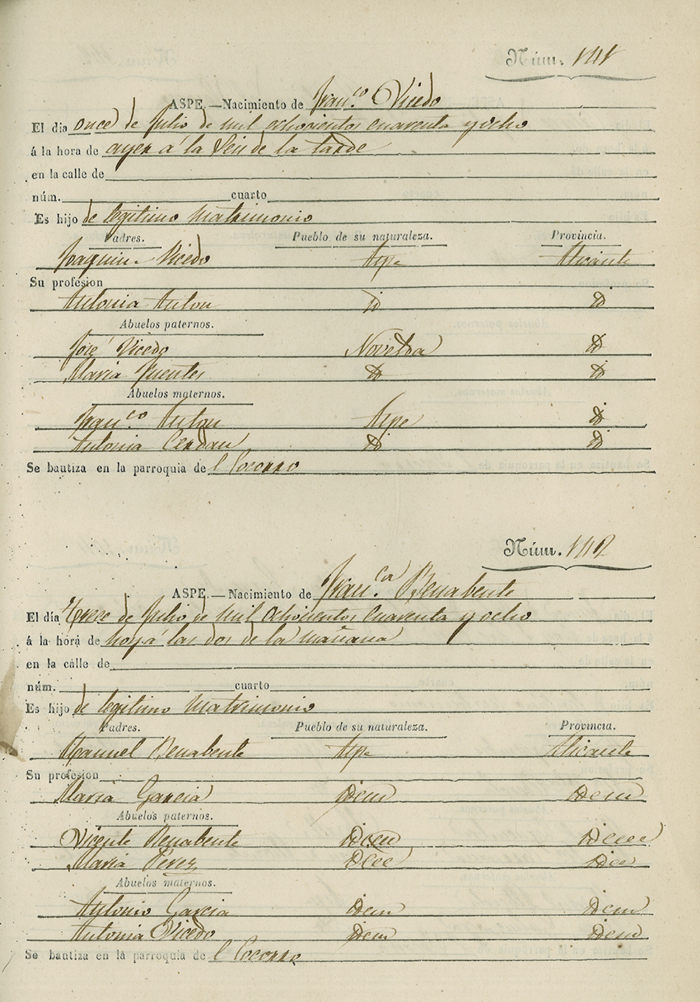 Núm. 141
ASPE.—Nacimiento de Fran.co Vicedo
El dia once de Julio de mil ochocientos cuarenta y ocho
á la hora de ayer á la Seis de la tarde
en la calle de
núm. cuarto
Es hijo de legitimo Matrimonio
Padres. Pueblo de su naturaleza. Provincia.
Joaquin Vicedo Aspe Alicante
Su profesion
Antonia Anton D D
Abuelos paternos.
José Vicedo Novelda D
Maria Puentes D D
Abuelos maternos.
Fran.co Anton Aspe D
Antonia Cerdan D D
Se bautiza en la parroquia del Socorro
Núm. 142
ASPE.—Nacimiento de Fran.ca Benabente
El día Trese de Julio de mil ochosientos cuarenta y ocho
á la hora de hoy á las dos de la mañana
en la calle de
núm. cuarto
Es hijo de legitimo Matrimonio
Padres. Pueblo de su naturaleza. Provincia.
Manuel Benabente Aspe Alicante
Su profesion
Maria Garcia Idem Idem
Abuelos paternos.
Vicente Benabente Idem Idem
Maria Pérez
Abuelos maternos.
Antonio Garcia Idem Idem
Antonia Vicedo Idem Idem
Se bautiza en la parroquia del Socorro